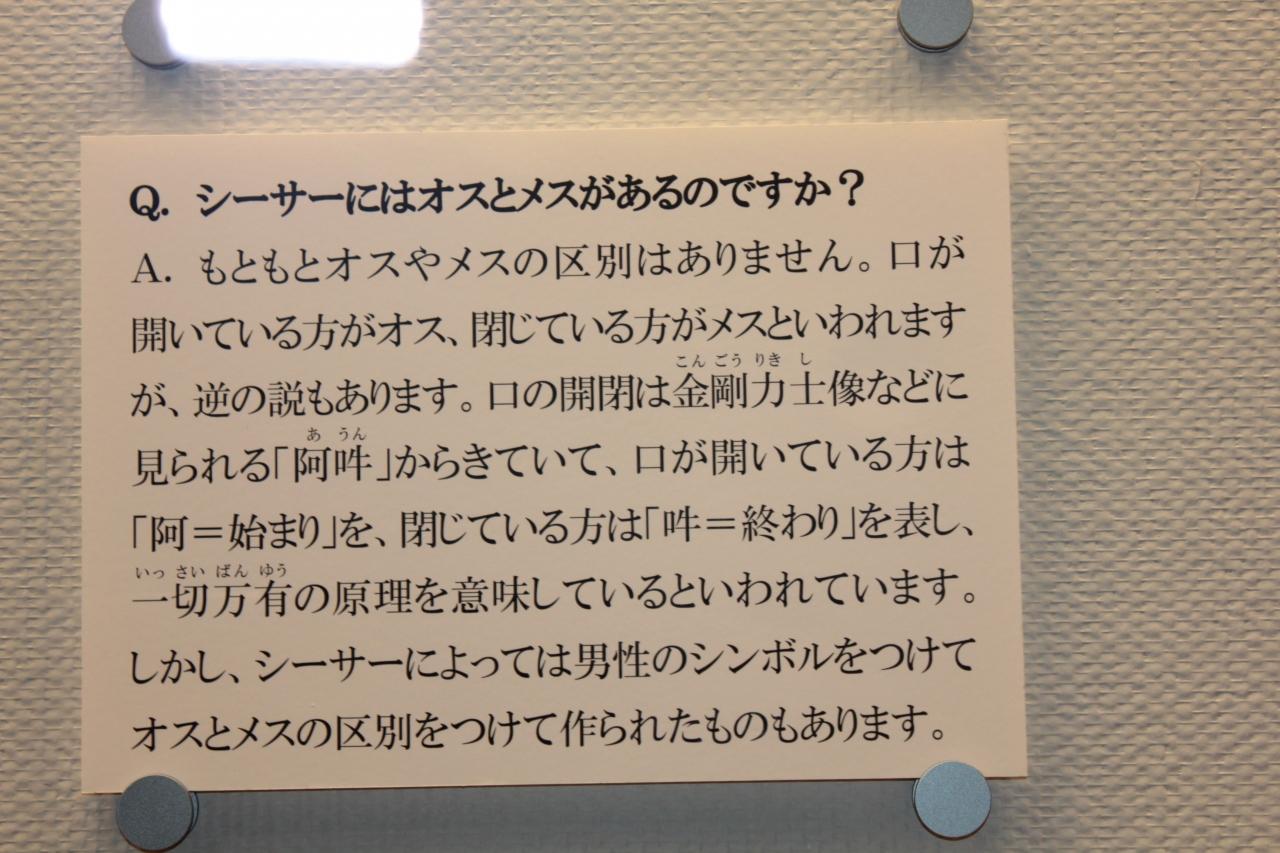 Q. シーサーにはオスとメスがあるのですか？
A. もともとオスやメスの区別はありません。口が
開いている方がオス、閉じている方がメスといわれます
こんごうりきし
が、逆の説もあります。口の開閉は金剛力士像などに
あうん
見られる「阿吽」からきていて、口が開いている方は
「阿＝始まり」を、閉じている方は「吽＝終わり」を表し、
いっさいばんゆう
一切万有の原理を意味しているといわれています。
しかし、シーサーによっては男性のシンボルをつけて
オスとメスの区別をつけて作られたものもあります。